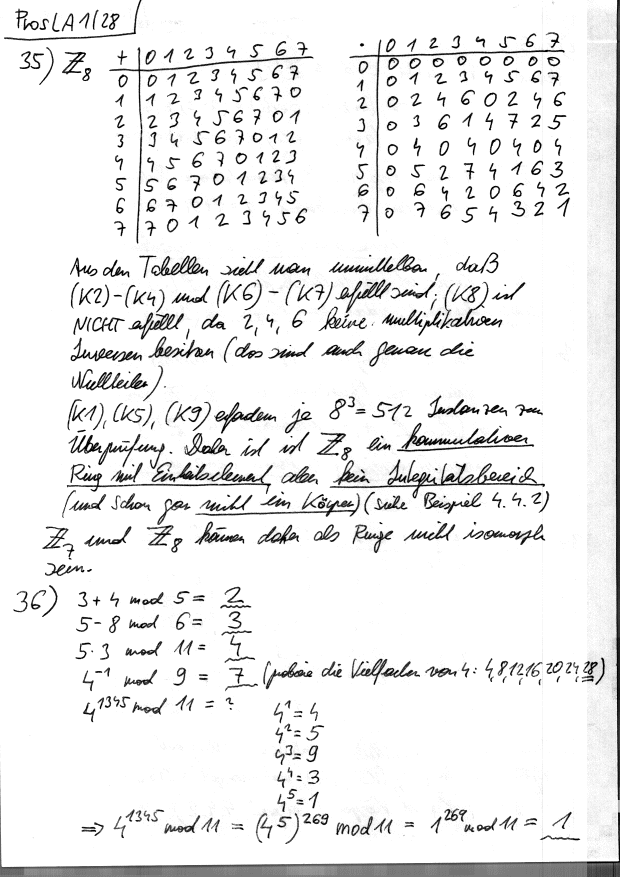 ProsLA1/28
35) ℤ₈
+ | 0 1 2 3 4 5 6 7
0 | 0 1 2 3 4 5 6 7
1 | 1 2 3 4 5 6 7 0
2 | 2 3 4 5 6 7 0 1
3 | 3 4 5 6 7 0 1 2
4 | 4 5 6 7 0 1 2 3
5 | 5 6 7 0 1 2 3 4
6 | 6 7 0 1 2 3 4 5
7 | 7 0 1 2 3 4 5 6
· | 0 1 2 3 4 5 6 7
0 | 0 0 0 0 0 0 0 0
1 | 0 1 2 3 4 5 6 7
2 | 0 2 4 6 0 2 4 6
3 | 0 3 6 1 4 7 2 5
4 | 0 4 0 4 0 4 0 4
5 | 0 5 2 7 4 1 6 3
6 | 0 6 4 2 0 6 4 2
7 | 0 7 6 5 4 3 2 1
Aus den Tabellen sieht man unmittelbar, daß
(K2)-(K4) und (K6)-(K7) erfüllt sind; (K8) ist
NICHT erfüllt, da 2, 4, 6 keine multiplikativen
Inversen besitzen (das sind auch genau die
Nullteiler).
(K1), (K5), (K9) erfordern je 8³ = 512 Instanzen zur
Überprüfung. Daher ist ist ℤ₈ ein kommutativer
Ring mit Einheitselement, aber kein Integritätsbereich
(und schon gar nicht ein Körper) (siehe Beispiel 4.4.2)
ℤ₇ und ℤ₈ können daher als Ringe nicht isomorph
sein.
36) 3+4 mod 5 = 2
5-8 mod 6 = 3
5·3 mod 11 = 4
4⁻¹ mod 9 = 7 (probiere die Vielfachen von 4: 4,8,12,16,20,24,28)
4¹³⁴⁵ mod 11 = ?
4¹ = 4
4² = 5
4³ = 9
4⁴ = 3
4⁵ = 1
⇒ 4¹³⁴⁵ mod 11 = (4⁵)²⁶⁹ mod 11 = 1²⁶⁹ mod 11 = 1